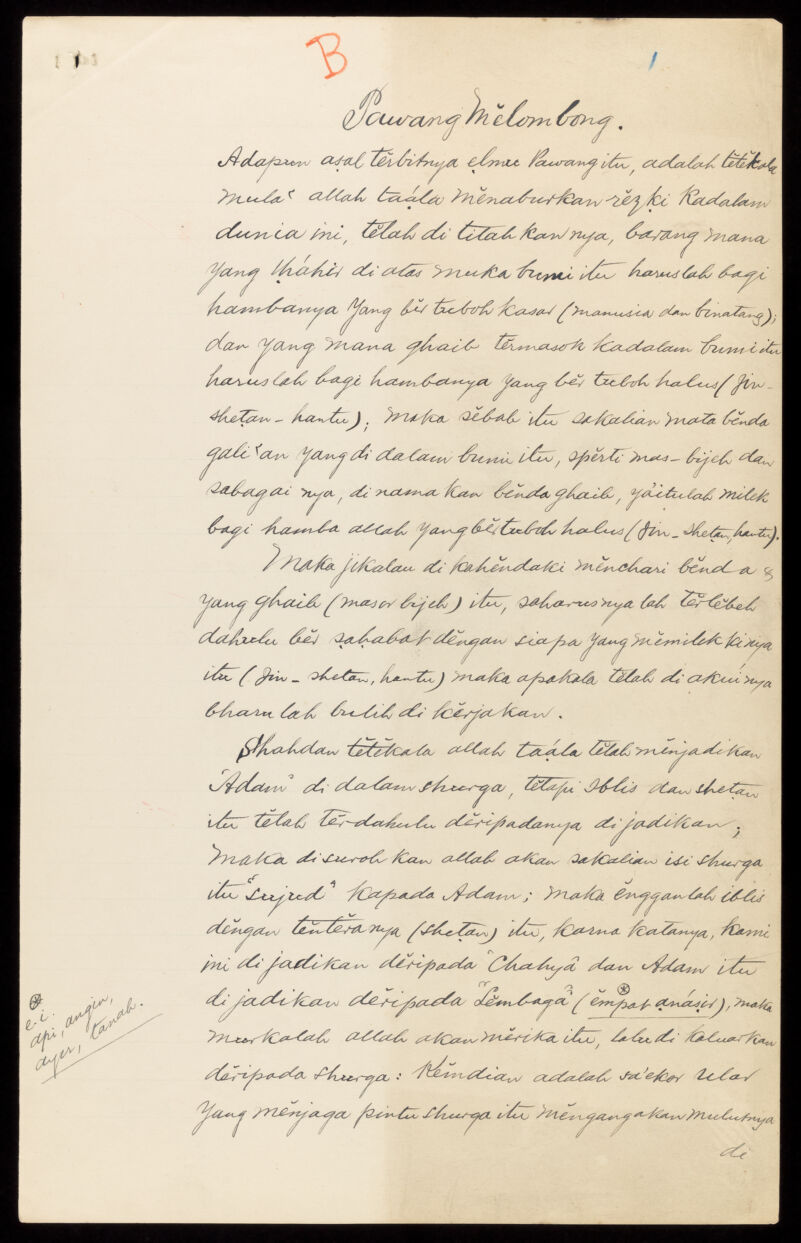 B
1
Pawang Mĕlombong.
Adapun aṣal tĕrbitnya ĕlmu Pawang itu, adalah tĕtĕkala
mula² allah taála mĕnaburkan rĕzḳi Kadalam
dunia ini, tĕlah di titah kan nya, barang mana
yang tháhir di atas muka bumi itu harus lah bagi
hambanya yang bĕr tuboh kasar (manusia dan binatang);
dan yang mana ghaib tĕrmasok kadalam bumi itu
harus lah bagi hambanya yang bĕr tuboh halus (Jin-
sheṭan - hantu); Maka sĕbab itu sakalian mata bĕnda
gali'an yang di dalam bumi itu, spĕrti mas - bijeh dan
sabagai nya, di nama kan bĕnda ghaib, yáitulah milek
bagi hamba allah yang bĕr tuboh halus (Jin - sheṭan, hantu).
Maka jikalau di kahĕndaki mĕnchari bĕnda²
yang ghaib (mas or bijeh) itu, saharusnya lah tĕrlĕbeh
dahulu bĕr ṣaḥabat dĕngan siapa yang mĕmilek ki nya
itu (Jin - sheṭan, hantu) maka apakala tĕlah di akuí nya
bharu lah bulih di kĕrjakan.
Shahdan tĕtĕkala allah taála tĕlah mĕnjadikan
"Adam" di dalam shurga, tĕtapi Iblis dan sheṭan
itu tĕlah tĕr-dahulu dĕripadanya di jadikan;
Maka di suroh kan allah akan sakalian isi shurga
itu "sujud" kapada Adam; maka ĕngganlah iblis
dĕngan tĕntĕra nya (sheṭan) itu, karna katanya, kami
ini di jadikan dĕripada "Chahya" dan Adam itu
di jadikan dĕripada "Lĕmbaga" (ĕmpat ⊛ anáṣir), maka
murkalah allah akan mĕrika itu, lalu di kaluar kan
dĕripada shurga: Kĕmdian adalah sa'ekor ular
Yang mĕnjaga pintu shurga itu mĕngangakan mulutnya
di
⊛
e.i.
api, angin,
ayer, tanah.